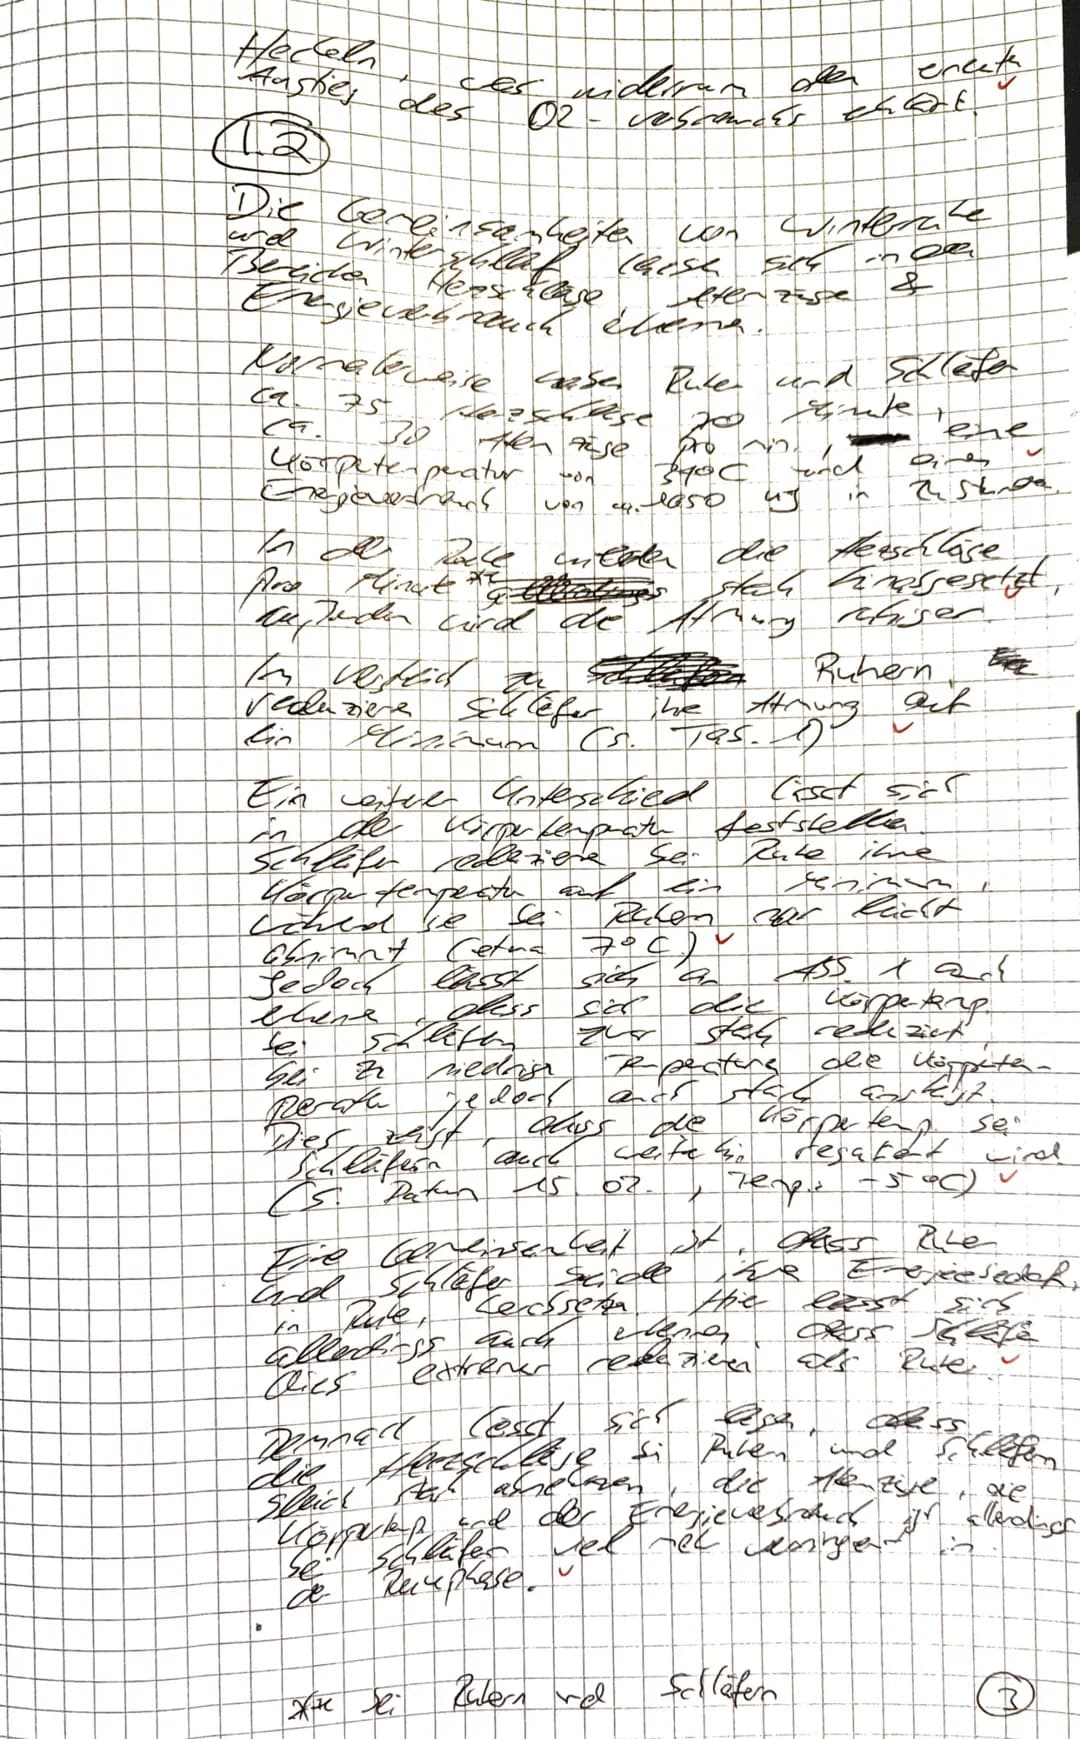 Hecheln, das widerrum den erneuten
Anstieg des O2-verbrauchs erklärt.
1.2
Die Gemeinsamkeiten von Winterruhe
und Winterschlaf lassen sich in den
Bereichen Herzschläge, Atemzüge &
Energieverbrauch erkennen.
Normalerweise haben Ruher und Schläfer
ca. 75 Herzschläge pro Minute,
ca. 30 Atemzüge pro min., eine
Körpertemperatur von °C und einen
Energieverbrauch von ca. 1050 in Stunden.
In der Ruhe werden die Herzschläge
pro Minute ** stark herabgesetzt,
außerdem wird die Atmung ruhiger.
Im Vergleich zu Ruhern,
reduzieren Schläfer ihre Atmung auf
ein Minimum (s. Tab. 1)
Ein weiterer Unterschied lässt sich
in der Körpertemperatur feststellen.
Schläfer reduzieren bei Ruhe ihre
Körpertemperatur auf ein Minimum,
während sie bei Ruhern nur leicht
abnimmt (etwa 7°C)
Jedoch lässt sich an Abb. 1 auch
erkennen, dass sich die Körpertemp.
bei Schläfern zwar stark reduziert,
bei zu niedrigen Temperaturen die Körpertem-
peratur jedoch auch stark ansteigt.
Dies zeigt, dass die Körpertemp. bei
Schläfern auch weiterhin reguliert wird
(s. Datum 15.02., Temp.: -5°C)
Eine Gemeinsamkeit ist, dass Ruher
und Schläfer beide ihre Energiebedarf,
in Ruhe, herabsetzen. Hier lässt sich
allerdings auch erkennen, dass Schläfer
dies extremer reduzieren als Ruher.
Demnach lässt sich sagen, dass
die Herzschläge bei Ruhern und Schläfern
gleich stark abnehmen, die Atemzüge, die
Körpertemp und der Energieverbrauch ist allerdings
bei Schläfern viel mehr weniger in
der Ruhephase.
** bei Ruhern und Schläfern
3